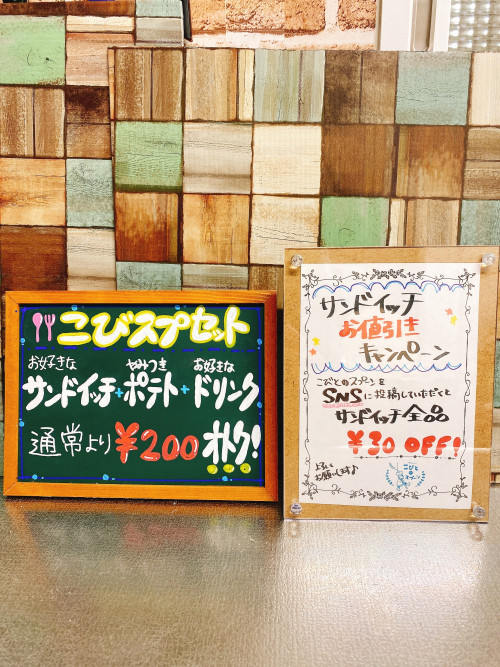 こびスプセット
お好きな やみつき お好きな
サンドイッチ+ポテト+ドリンク
通常より ¥200 オトク!
サンドイッチ
お値引き
キャンペーン
こびとのスプーンを
SNSに投稿していただくと
サンドイッチ全品
¥30 OFF!
よろしく
お願いします♪
こびと
の
スプーン